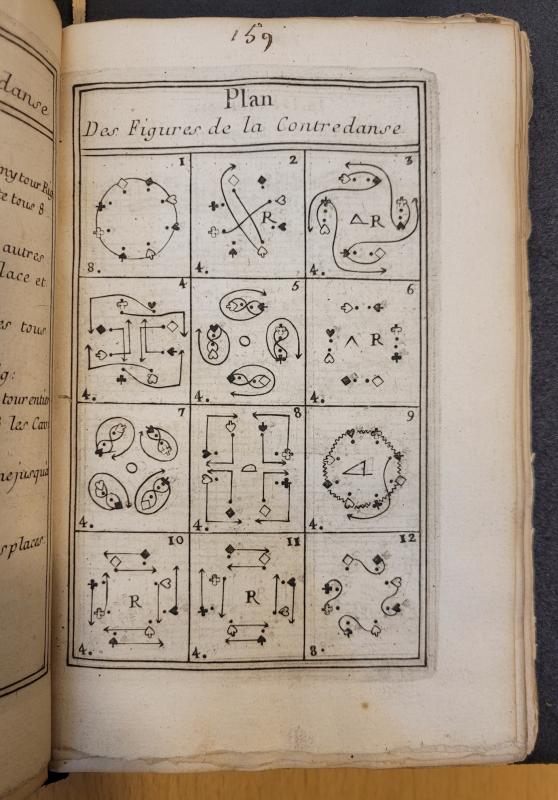 159
danse
tour
te tous 8
autres
lace et
es tous
g:
tour entier
les Cav
splaces.
Plan
Des Figures de la Contredanse
1
8.
2
R
4.
3
R
4.
4
4.
5
4.
6
R
4.
7
4.
8
4.
9
4.
10
R
4.
11
R
4.
12
8.